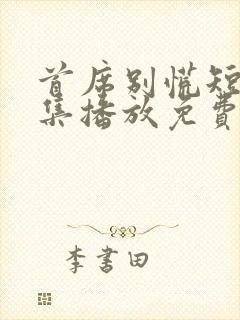 首席别慌短
集播放免費
李書田